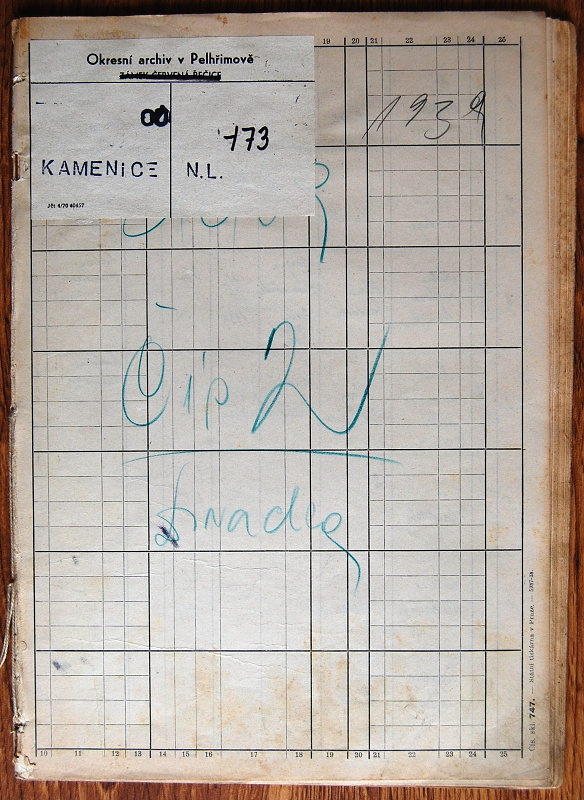 19 20 21 22 23 24 25
Okresní archiv v Pelhřimově
ZÁMEK ČERVENÁ ŘEČICE
173
KAMENiCE N.L.
Jčt 4/70 40457
1939
Čip
10 11 12 13 14 15 16 17 18 19 20 21 22 23 24 25
Čís. skl. 747. — Státní tiskárna v Praze. — 5967-38.